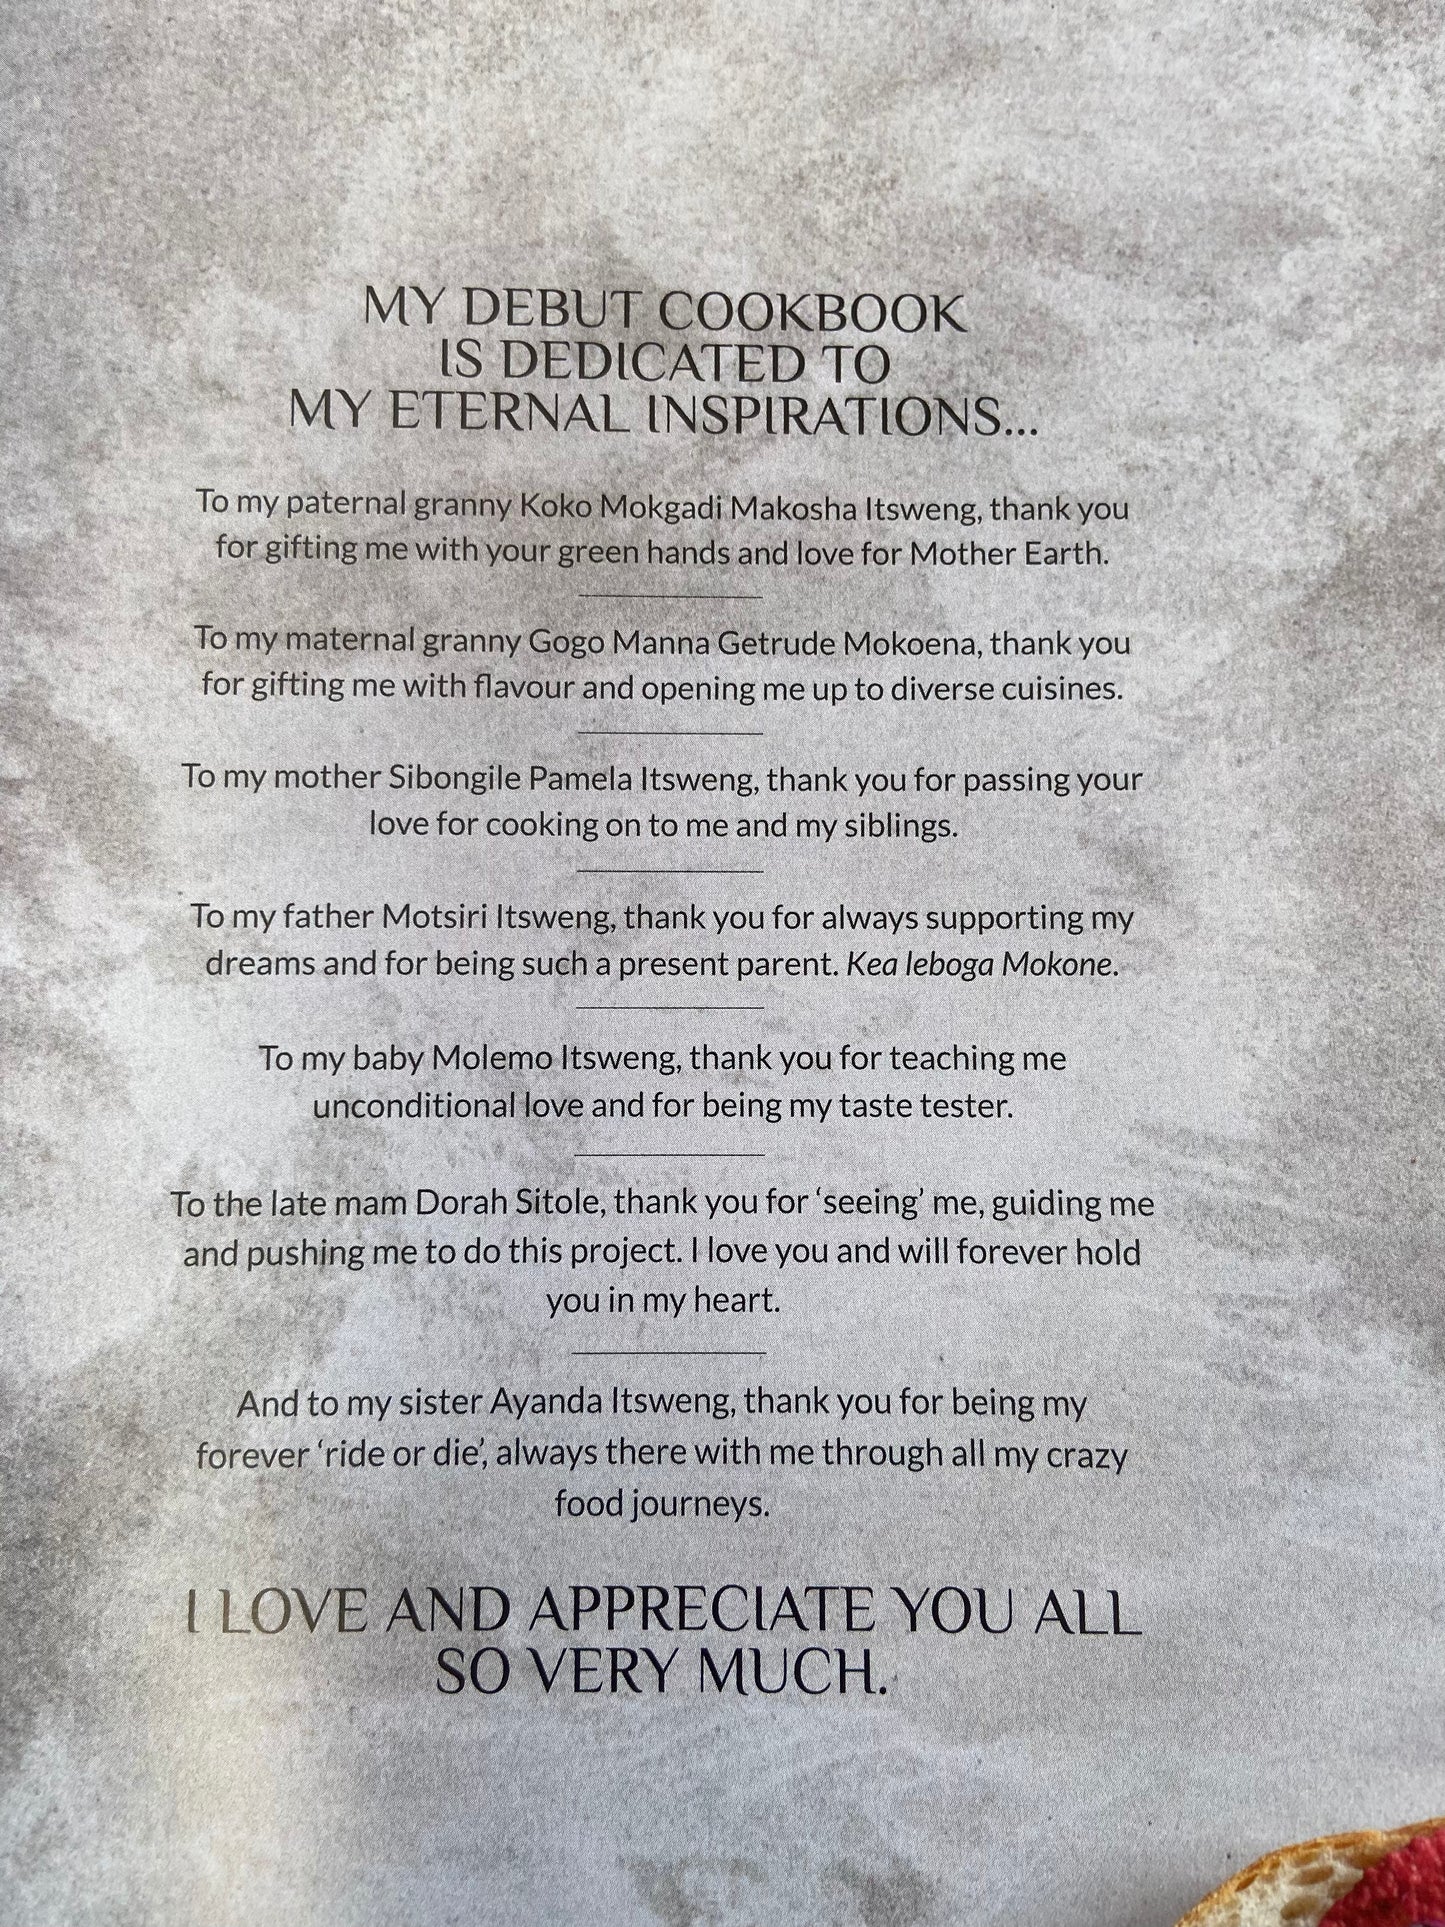 MY DEBUT COOKBOOK
IS DEDICATED TO
MY ETERNAL INSPIRATIONS...
To my paternal granny Koko Mokgadi Makosha Itsweng, thank you
for gifting me with your green hands and love for Mother Earth.
To my maternal granny Gogo Manna Getrude Mokoena, thank you
for gifting me with flavour and opening me up to diverse cuisines.
To my mother Sibongile Pamela Itsweng, thank you for passing your
love for cooking on to me and my siblings.
To my father Motsiri Itsweng, thank you for always supporting my
dreams and for being such a present parent. Kea leboga Mokone.
To my baby Molemo Itsweng, thank you for teaching me
unconditional love and for being my taste tester.
To the late mam Dorah Sitole, thank you for ‘seeing’ me, guiding me
and pushing me to do this project. I love you and will forever hold
you in my heart.
And to my sister Ayanda Itsweng, thank you for being my
forever ‘ride or die’, always there with me through all my crazy
food journeys.
I LOVE AND APPRECIATE YOU ALL
SO VERY MUCH.